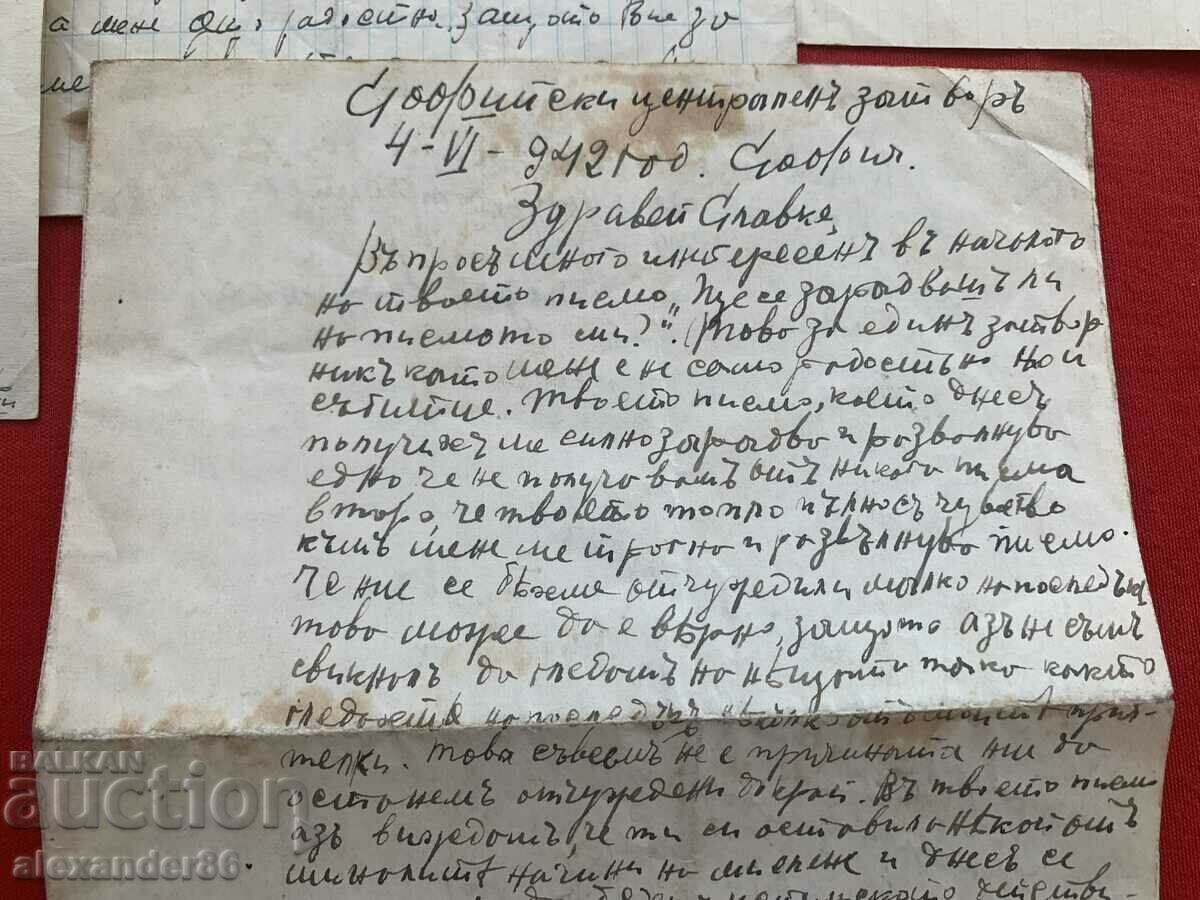 а мене ... радостно, защото Вие за
Софийски централенъ затворъ
4-VI-942 год. София.
Здравей Славке,
Въпросъ много интересенъ въ началото
на твоето писмо „Ще се зарадвашъ ли
на писмото ми?". Това за единъ затвор
никъ като мене е не само радостно но и
събитие. Твоето писмо, което днесъ
получихъ ме силно зарадва и развълнува
едно че не получавамъ отъ никого писма
второ, че твоето топло и пълно съ чувство
къмъ мене ме трогна и развълнува писмо.
Че ние се бѣхме отчуждили малко напоследъкъ
това може да е вѣрно, защото азъ не съмъ
свикналъ да гледамъ на нѣщата така както
гледахте напоследъкъ нѣкои отъ моите прия-
телки. Това съвсемъ не е причината ни да
останемъ отчуждени докрай. Въ твоето писмо
азъ виждамъ, че ти си оставила нѣкой отъ
миналитѣ начини на мислене и днесъ се
BALKAN
auction
alexander86